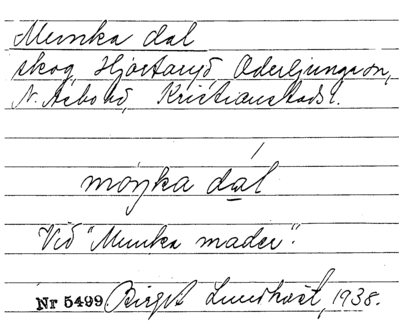 Munka dal
skog, Hjortaryd, Oderljunga sn,
N. Åsbo hd, Kristianstads l.
mòŋka dál
Vid "Munka mader".
Nr 5499 Birgit Lundkvist, 1938.